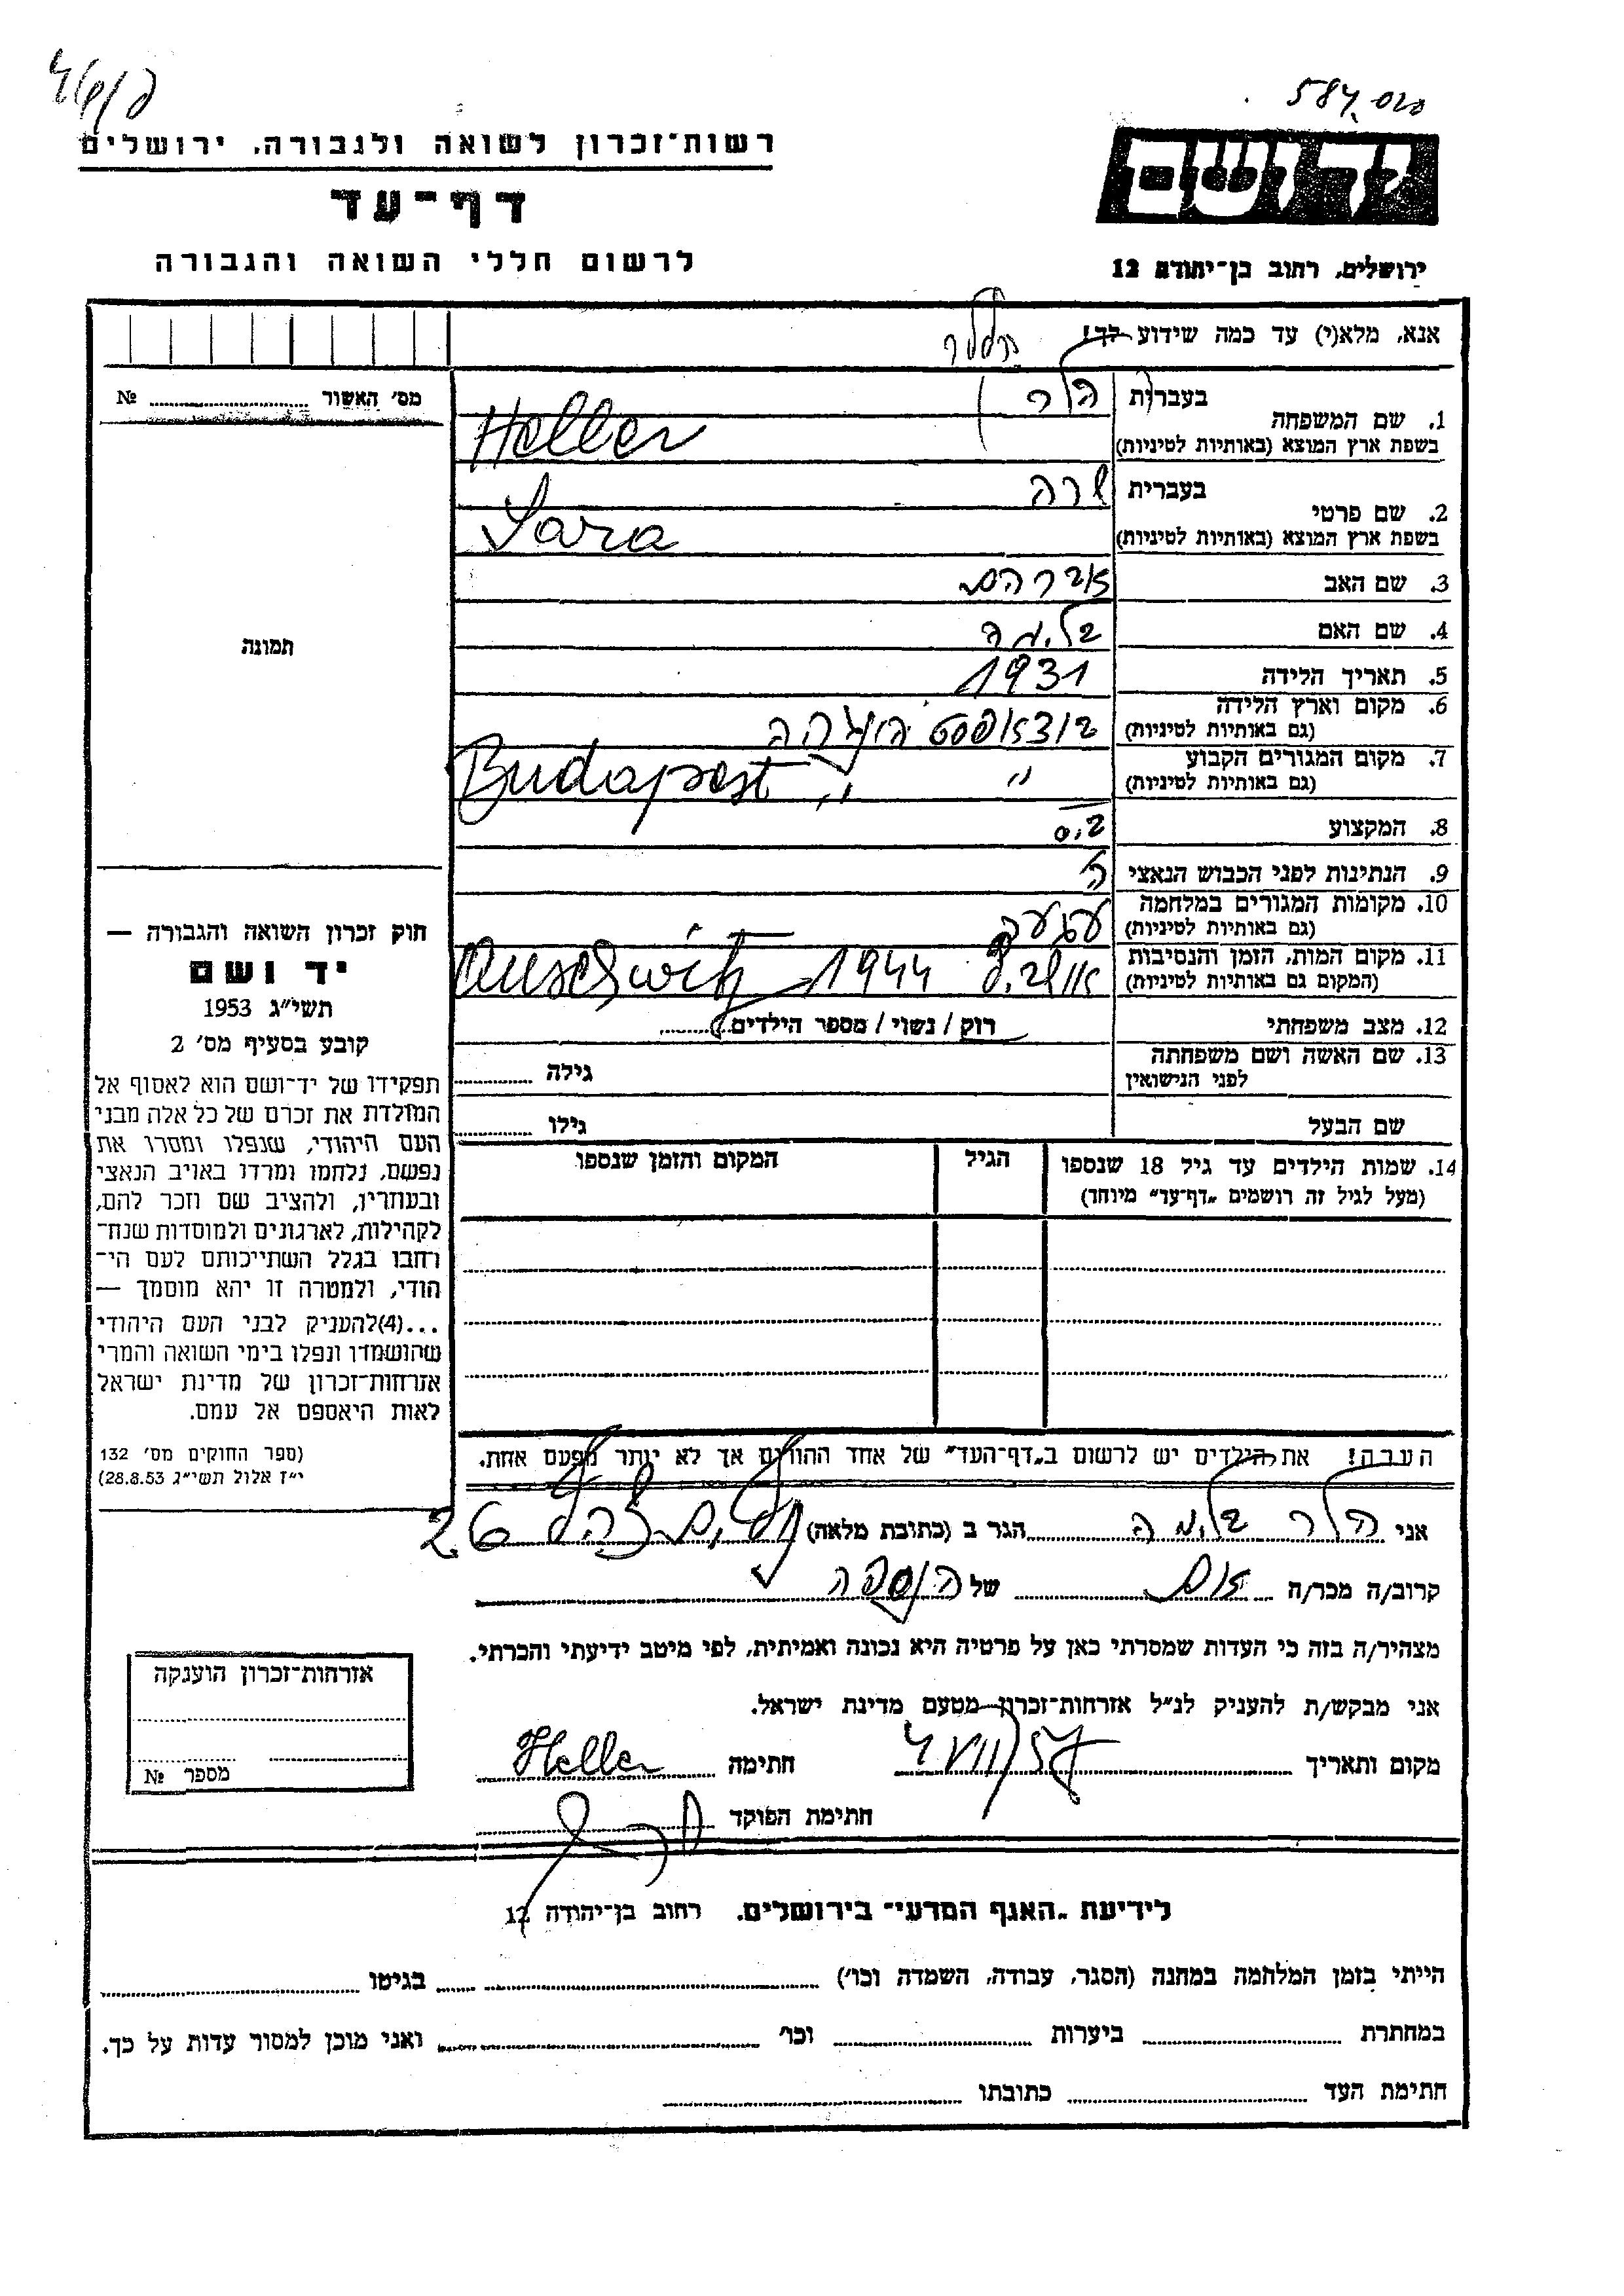 587.
רשות־זכרון לשואה ולגבורה, ירושלים
דף־עד
לרשום חללי השואה והגבורה
ידושם
ירושלים, רחוב בן־יהודה 12
אנא, מלא(י) עד כמה שידוע לך!
הללר
מס׳ האשור ........ №
1. שם המשפחה
בעברית הלר
בשפת ארץ המוצא (באותיות לטיניות) Heller
2. שם פרטי
בעברית שרה
בשפת ארץ המוצא (באותיות לטיניות) Sara
3. שם האב אברהם
4. שם האם בלימה
5. תאריך הלידה 1931
6. מקום וארץ הלידה
(גם באותיות לטיניות) בודאפסט הונגריה
7. מקום המגורים הקבוע
(גם באותיות לטיניות) " Budapest "
8. המקצוע
9. הנתינות לפני הכבוש הנאצי
10. מקומות המגורים במלחמה
(גם באותיות לטיניות)
11. מקום המות, הזמן והנסיבות
(המקום גם באותיות לטיניות) 1944 Auschwitz
12. מצב משפחתי רוק / נשוי / מספר הילדים
13. שם האשה ושם משפחתה
לפני הנישואין גילה
שם הבעל גילו
14. שמות הילדים עד גיל 18 שנספו
(מעל לגיל זה רושמים „דף־עד״ מיוחד)
הגיל
המקום והזמן שנספו
תמונה
חוק זכרון השואה והגבורה —
יד ושם
תשי״ג 1953
קובע בסעיף מס׳ 2
תפקידו של יד־ושם הוא לאסוף אל
המולדת את זכרם של כל אלה מבני
העם היהודי, שנפלו ומסרו את
נפשם, נלחמו ומרדו באויב הנאצי
ובעוזריו, ולהציב שם וזכר להם,
לקהילות, לארגונים ולמוסדות שנח־
רחבו בגלל השתייכותם לעם הי־
הודי, ולמטרה זו יהא מוסמך —
...(4)להעניק לבני העם היהודי
שהושמדו ונפלו בימי השואה והמרי
אזרחות־זכרון של מדינת ישראל
לאות היאספם אל עמם.
(ספר החוקים מס׳ 132
י״ז אלול תשי״ג 28.8.53)
הערה! את הילדים יש לרשום ב„דף־העד״ של אחד ההורים אך לא יותר מפעם אחת.
אני הלר בלימה הגר ב (כתובת מלאה) 26
קרוב/ה מכר/ה אם של הנספה
מצהיר/ה בזה כי העדות שמסרתי כאן על פרטיה היא נכונה ואמיתית, לפי מיטב ידיעתי והכרתי.
אני מבקש/ת להעניק לנ״ל אזרחות־זכרון מטעם מדינת ישראל.
מקום ותאריך חתימה Heller
חתימת הפוקד
אזרחות־זכרון הוענקה
מספר №
לידיעת „האגף המדעי״ בירושלים, רחוב בן־יהודה 12
הייתי בזמן המלחמה במחנה (הסגר, עבודה, השמדה וכו׳) בגיטו
במחתרת ביערות וכו׳ ואני מוכן למסור עדות על כך.
חתימת העד כתובתו